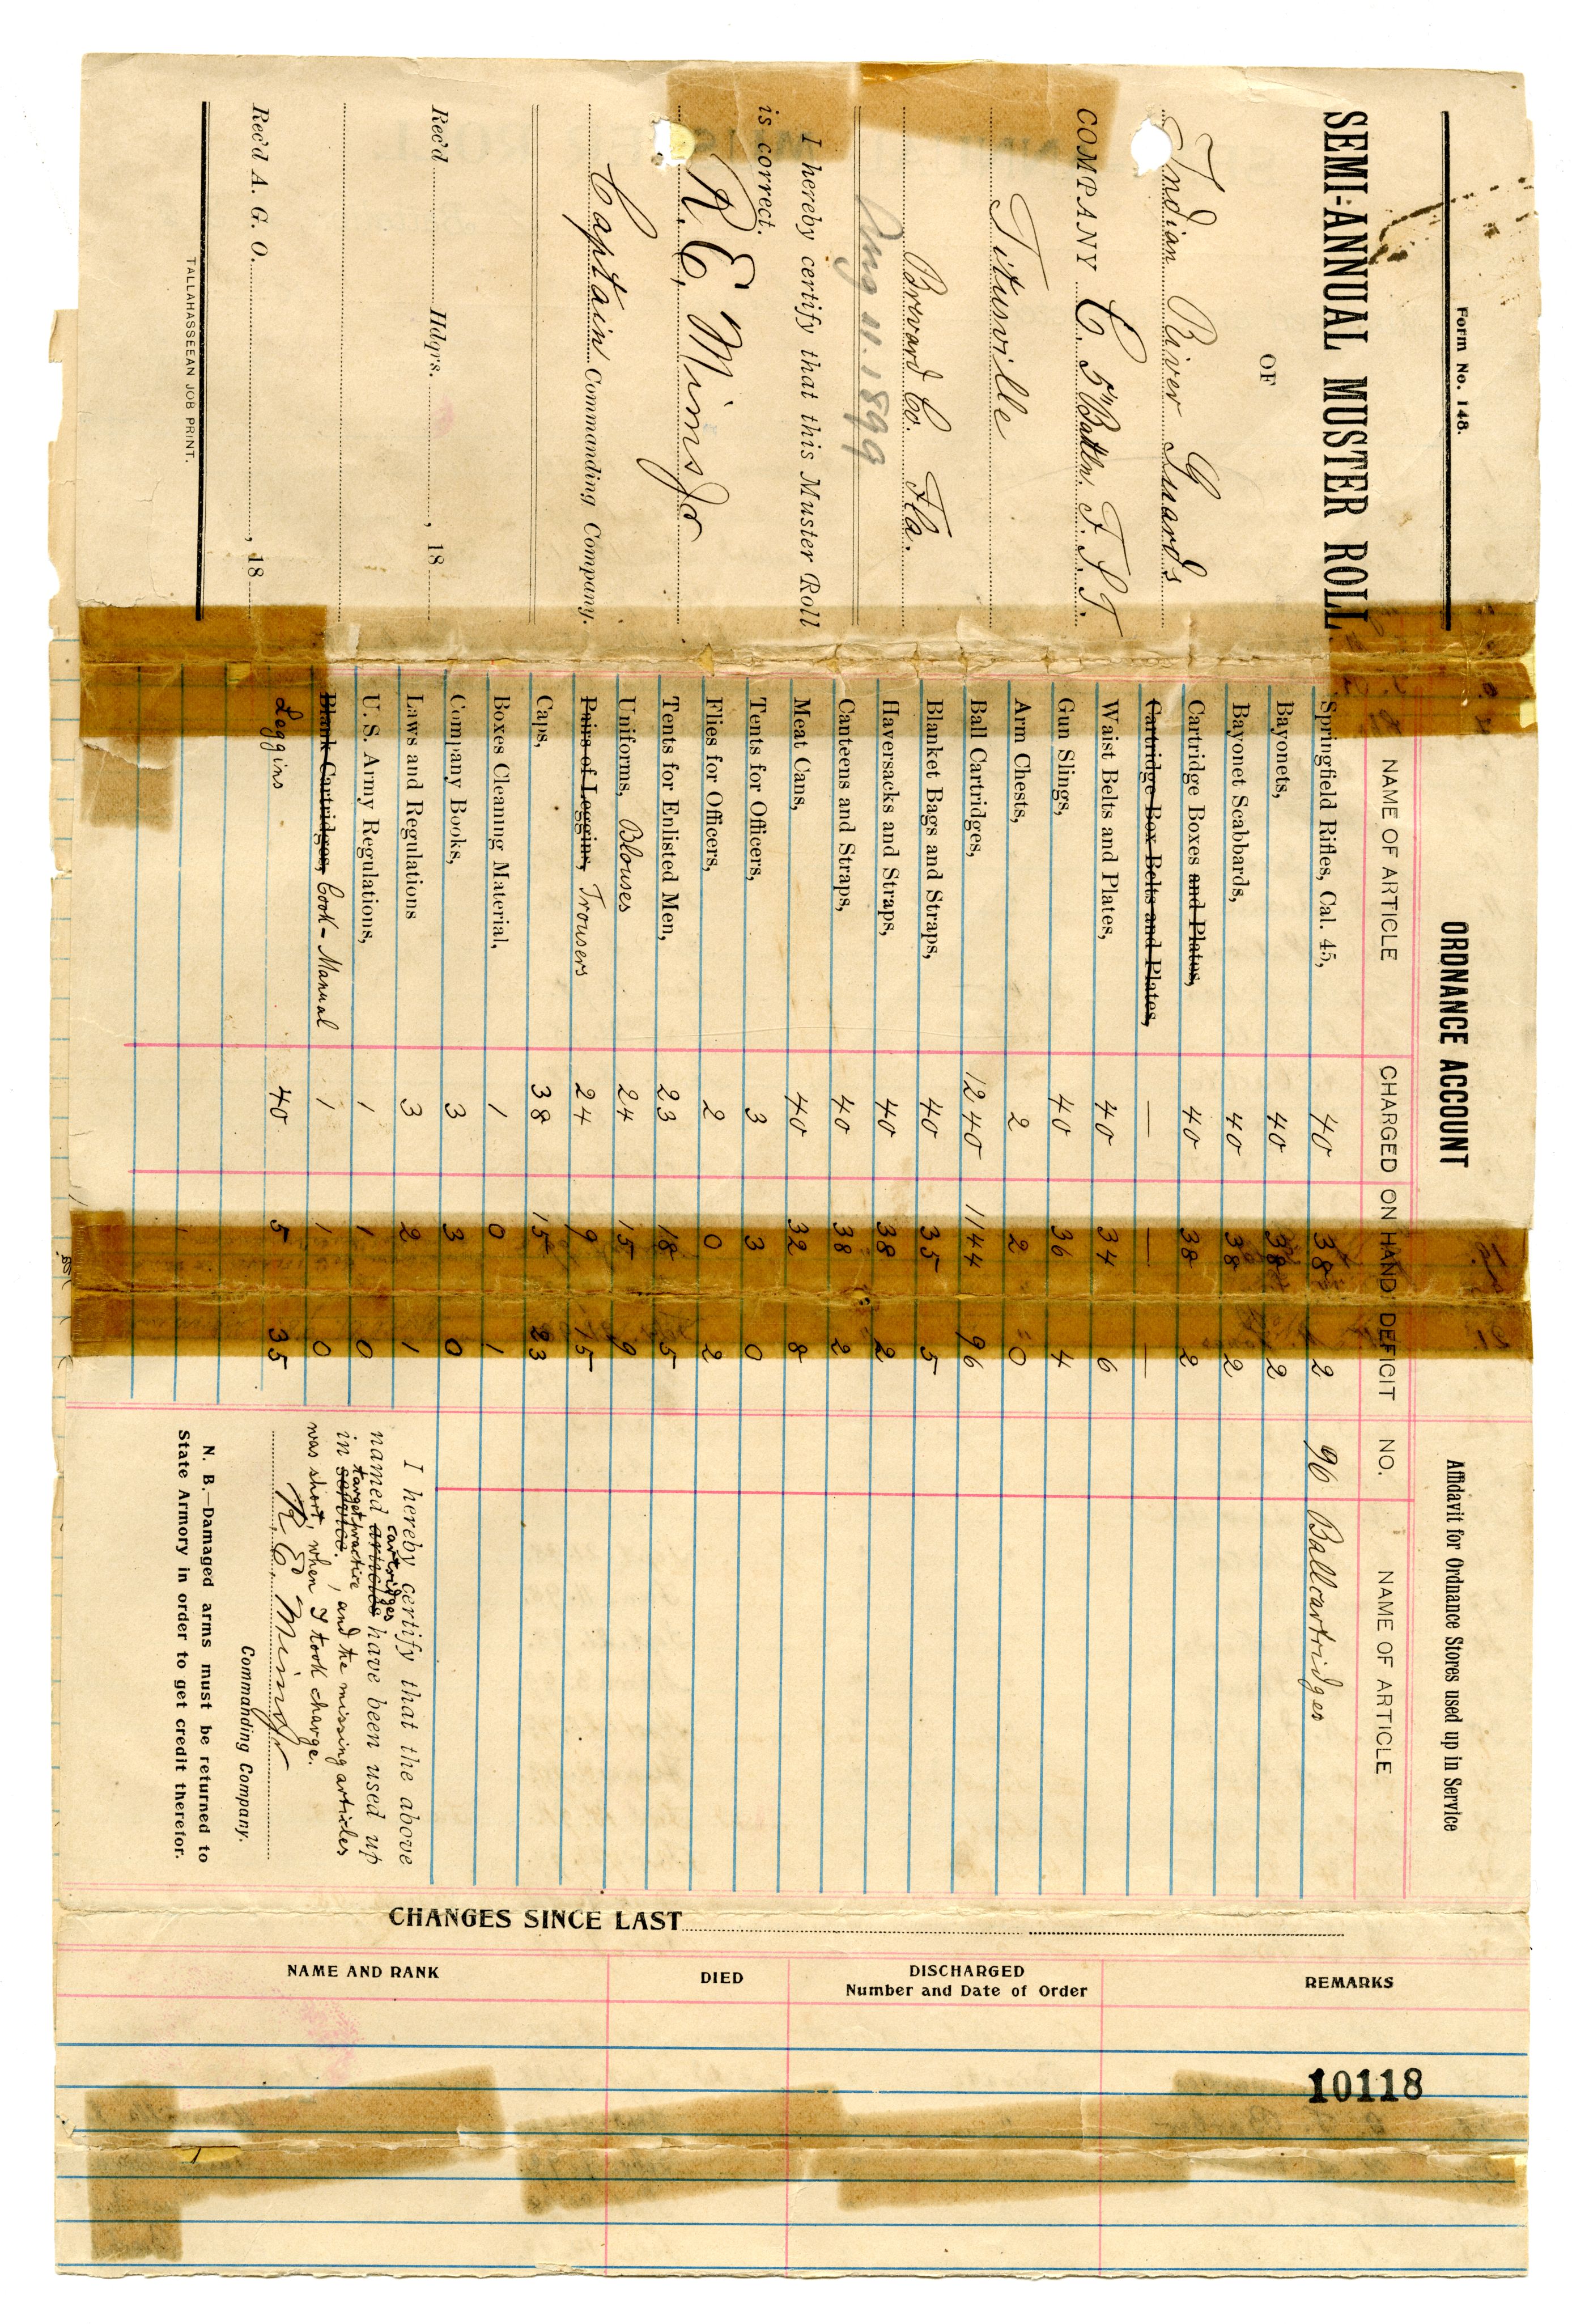 Form No. 148.
SEMI-ANNUAL MUSTER ROLL
OF
Indian River Guards
COMPANY C. 5th Battln. F. S. T.
Titusville
Brevard Co. Fla.
Aug 11. 1899
I hereby certify that this Muster Roll
is correct.
R. E. Mims Jr
Captain Commanding Company.
Rec'd Hdqrs. , 18
Rec'd A. G. O. , 18
TALLAHASSEEAN JOB PRINT.
ORDNANCE ACCOUNT
NAME OF ARTICLE CHARGED ON HAND DEFICIT
Springfield Rifles, Cal. 45, 40 38 2
Bayonets, 40 38 2
Bayonet Scabbards, 40 38 2
Cartridge Boxes and Plates, 40 38 2
Cartridge Box Belts and Plates, — — —
Waist Belts and Plates, 40 34 6
Gun Slings, 40 36 4
Arm Chests, 2 2 0
Ball Cartridges, 1240 1144 96
Blanket Bags and Straps, 40 35 5
Haversacks and Straps, 40 38 2
Canteens and Straps, 40 38 2
Meat Cans, 40 32 8
Tents for Officers, 3 3 0
Flies for Officers, 2 0 2
Tents for Enlisted Men, 23 18 5
Uniforms, Blouses 24 15 9
Pairs of Leggins, Trousers 24 9 15
Caps, 38 15 23
Boxes Cleaning Material, 1 0 1
Company Books, 3 3 0
Laws and Regulations 3 2 1
U. S. Army Regulations, 1 1 0
Blank Cartridges, Cook-Manual 1 1 0
Leggins 40 5 35
Affidavit for Ordnance Stores used up in Service
NO. NAME OF ARTICLE
96 Ball cartridges
I hereby certify that the above
cartridges
named articles have been used up
target practice
in service. , and the missing articles
was short, when I took charge.
R. E. Mims Jr
Commanding Company.
N. B.—Damaged arms must be returned to
State Armory in order to get credit therefor.
CHANGES SINCE LAST
NAME AND RANK DIED DISCHARGED REMARKS
Number and Date of Order
10118